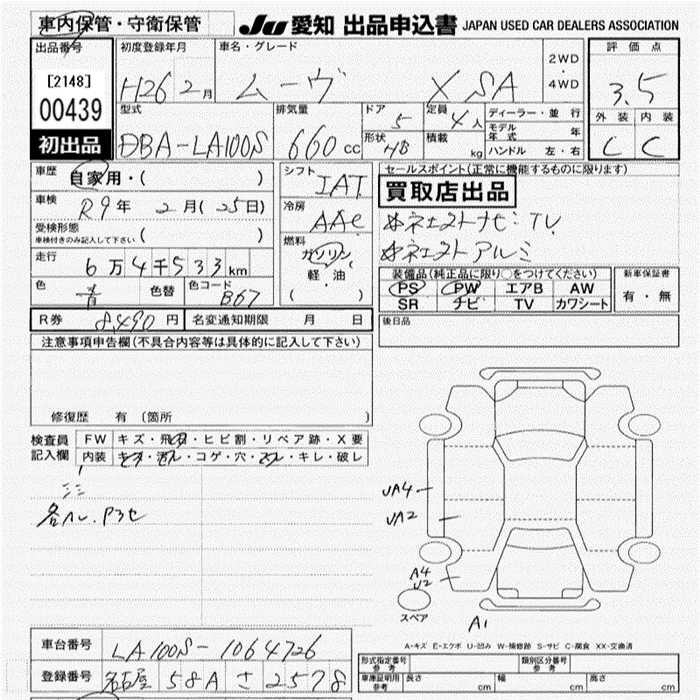 車内保管・守衛保管 JU 愛知 出品申込書 JAPAN USED CAR DEALERS ASSOCIATION
出品番号 初度登録年月 車名・グレード 2WD・4WD 評価点
[2148] H26 2月 ムーヴ X SA 3.5
00439 型式 排気量 ドア 定員 ディーラー・並行 外装 内装
初出品 DBA-LA100S 660cc 5 4人 モデル年式 年 C C
形状 HB 積載 kg ハンドル 左・右
車歴 自家用・( ) シフト IAT セールスポイント(正常に機能するものに限ります)
車検 R9年 2月(25日) 冷房 AAC 買取店出品
受検形態 ( )
車検付きのみ記入して下さい
燃料 ガソリン 軽・油 ( )
走行 6万4千533km
装備品(純正品に限り○をつけてください) 新車保証書
色 青 色替 色コード B67 PS PW エアB AW 有・無
SR ナビ TV カワシート
R券 8,490円 名変通知期限 月 日 後日品
注意事項申告欄(不具合内容等は具体的に記入して下さい)
修復歴 有 (箇所
検査員記入欄 FW キズ・飛石・ヒビ割・リペア跡・X要
内装 キズ・汚レ・コゲ・穴・スレ・キレ・破レ
UA4
UA2
A4
U2
スペア
A1
A-キズ E-エクボ U-凹み W-補修跡 S-サビ C-腐食 XX-交換済
車台番号 LA100S-1064726
登録番号 名古屋 58A さ 2578
形式指定番号 参考 類別区分番号 参考
車庫証明用 参考 長さ cm 幅 cm 高さ cm